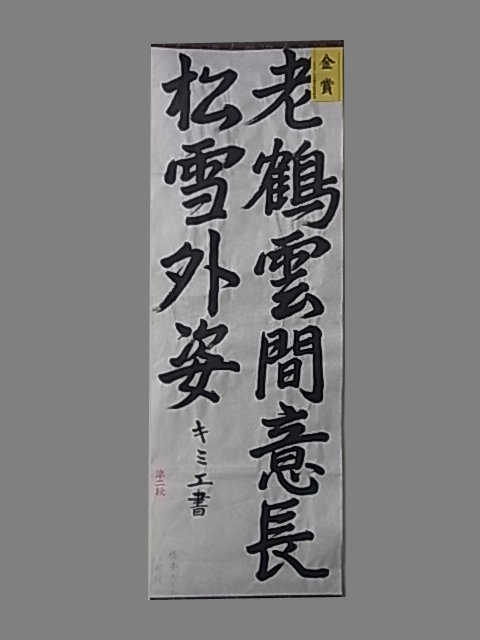 金賞
老鶴雲間意長
松雪外姿
キミエ書
準二段